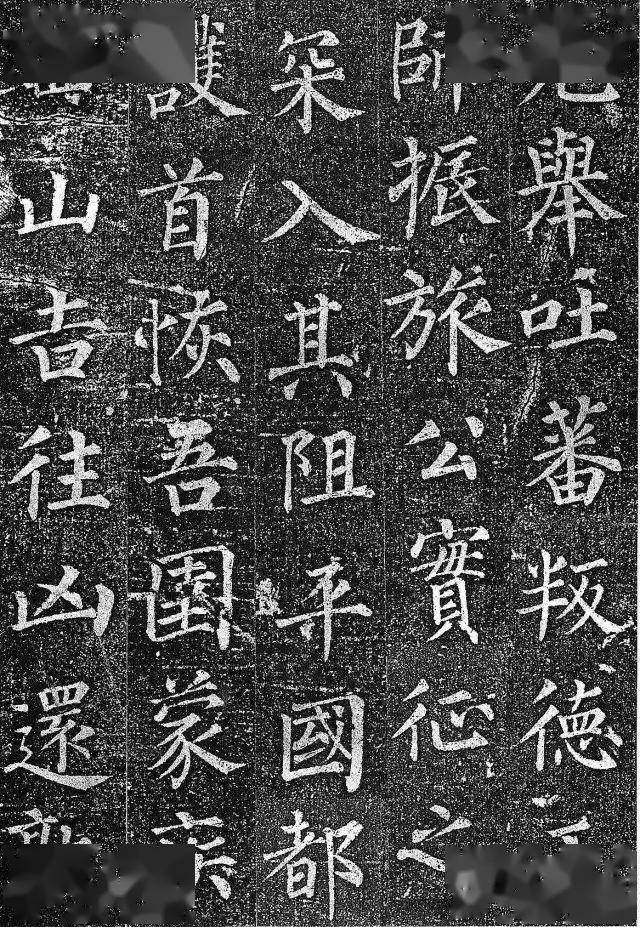 舉吐蕃叛德
師振旅公實征之
罙入其阻平國都
護首恢吾圉蒙
山吉往凶還